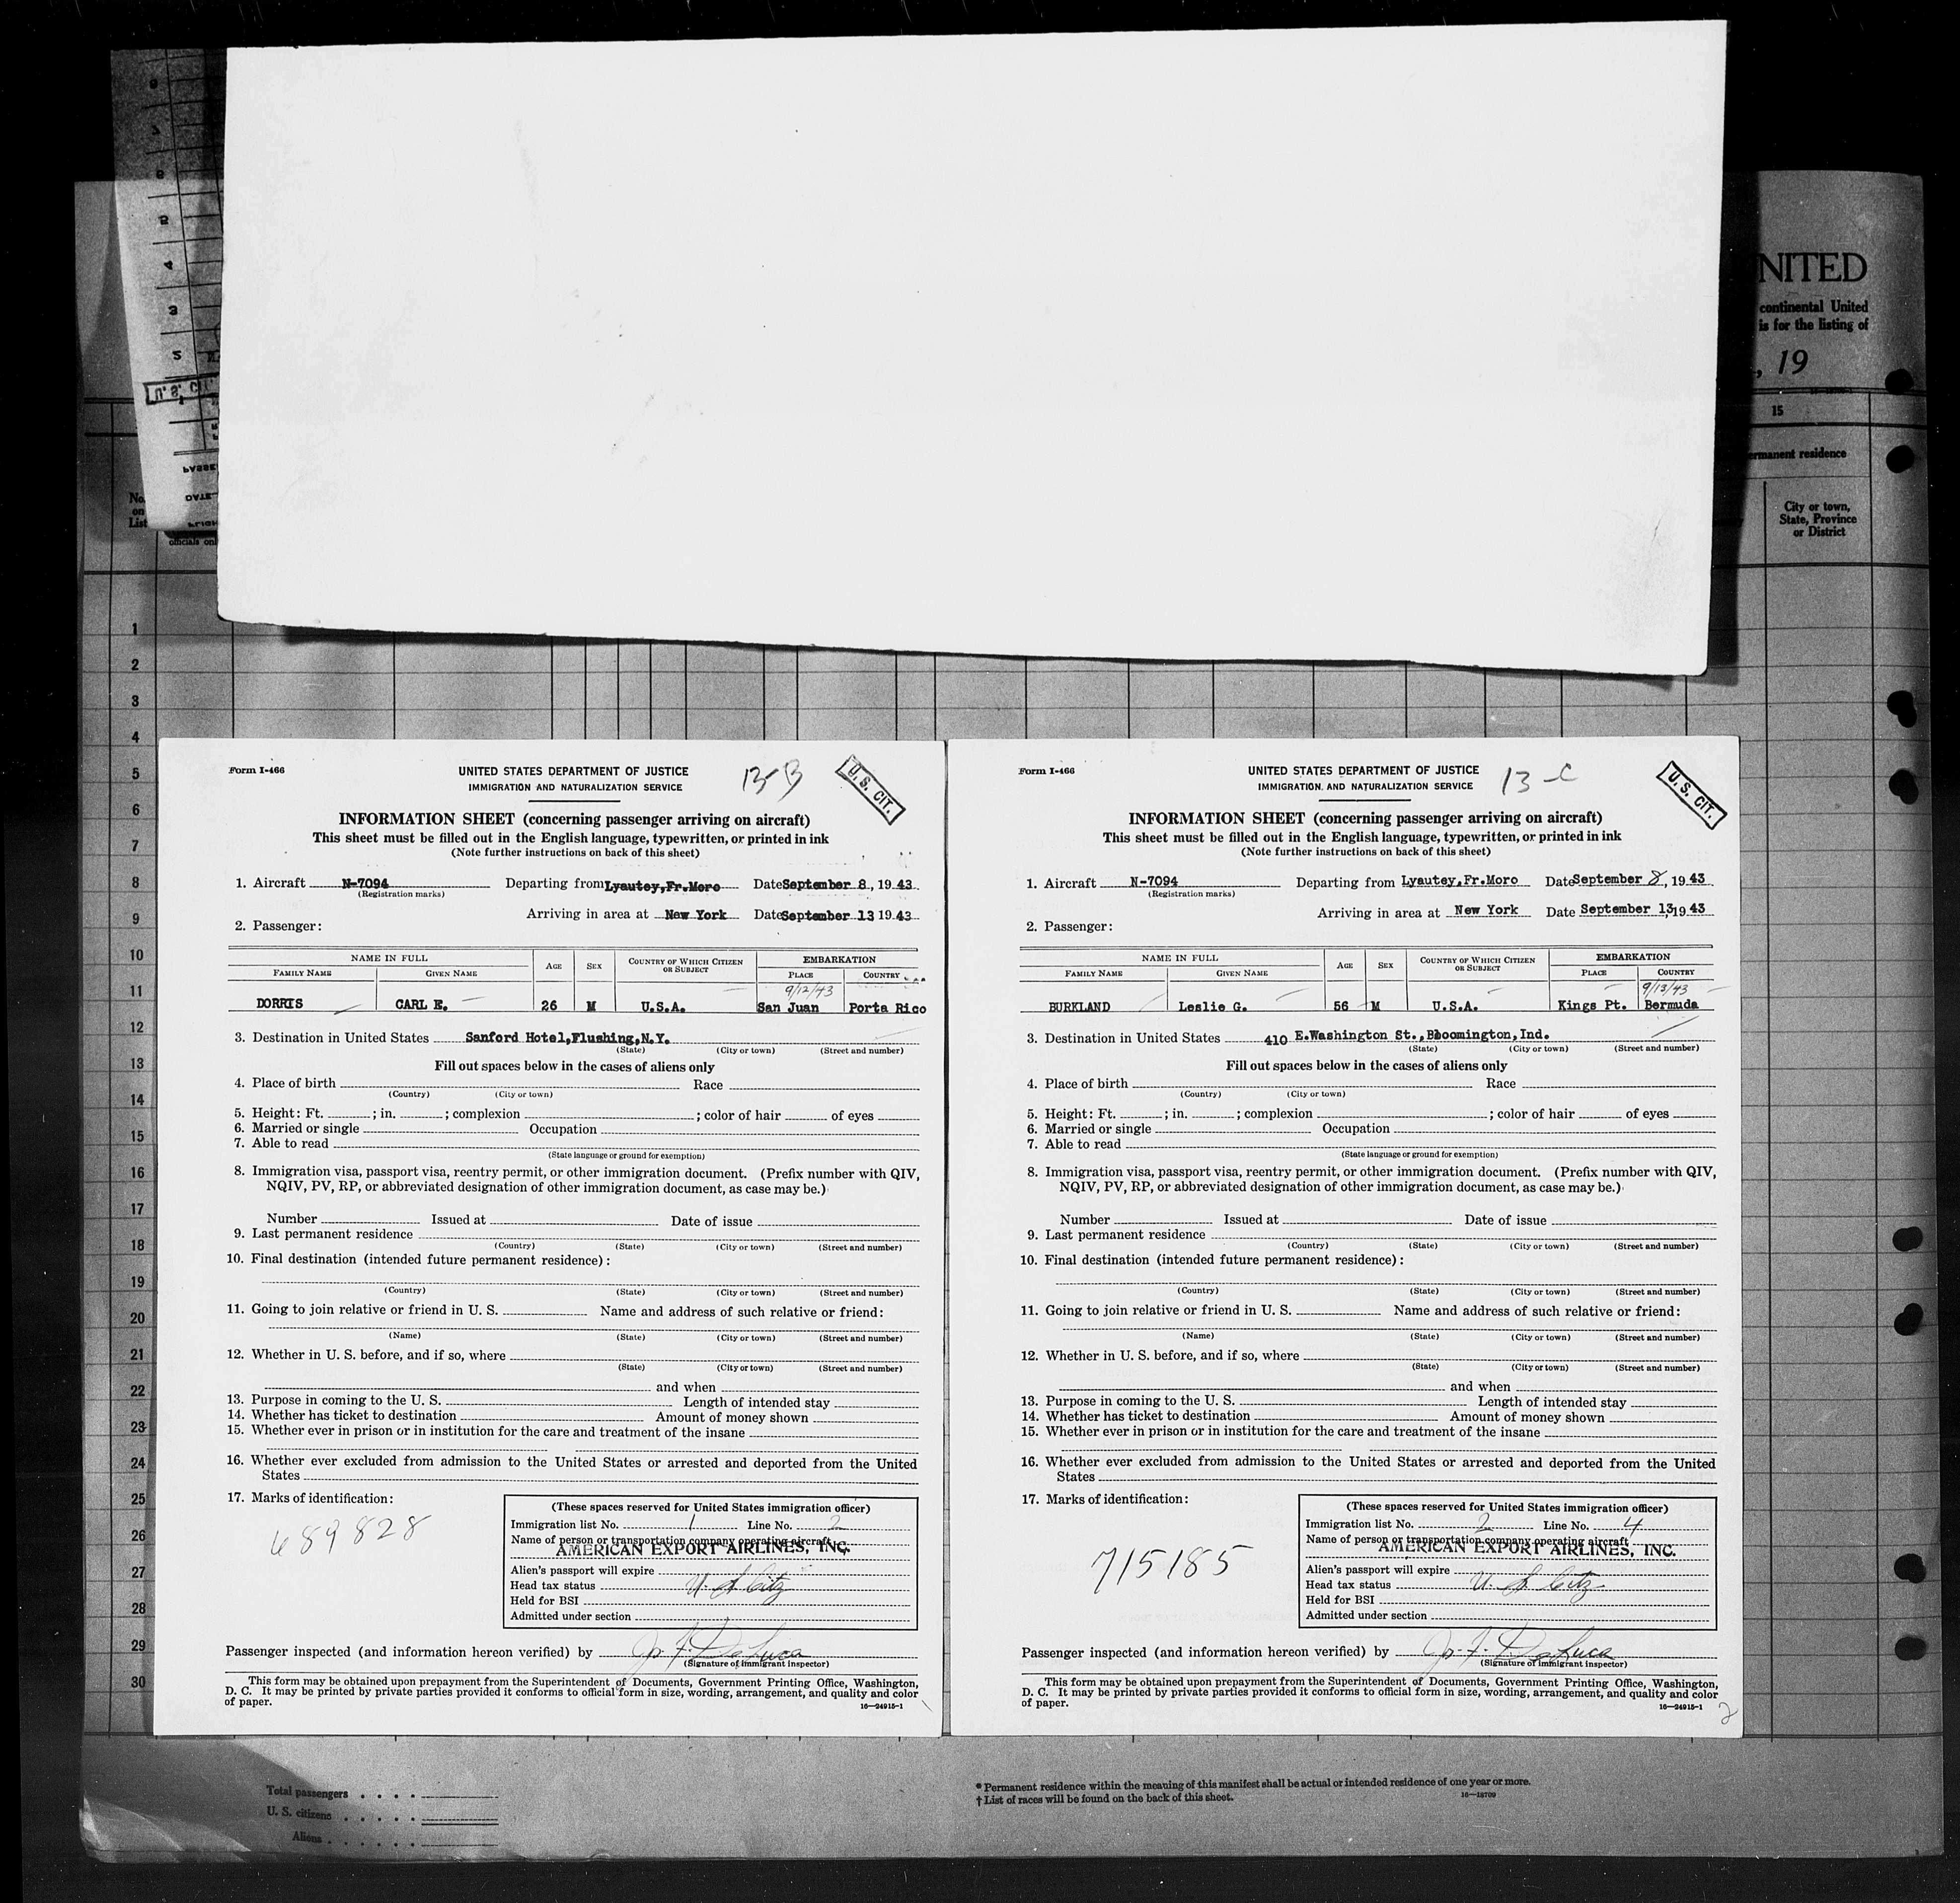 NITED
continental United
is for the listing of
, 19
15
ermanent residence
City or town,
State, Province
or District
No.
on
List
officials only
1
2
3
4
5
6
7
8
9
10
11
12
13
14
15
16
17
18
19
20
21
22
23
24
25
26
27
28
29
30
Form I-466
UNITED STATES DEPARTMENT OF JUSTICE
IMMIGRATION AND NATURALIZATION SERVICE
13-B
U. S. CIT.
INFORMATION SHEET (concerning passenger arriving on aircraft)
This sheet must be filled out in the English language, typewritten, or printed in ink
(Note further instructions on back of this sheet)
1. Aircraft N-7094 Departing from Lyautey,Fr.Moro Date September 8, 19 43
(Registration marks)
Arriving in area at New York Date September 13 19 43
2. Passenger:
NAME IN FULL AGE SEX COUNTRY OF WHICH CITIZEN OR SUBJECT EMBARKATION
FAMILY NAME GIVEN NAME PLACE COUNTRY
9/12/43
DORRIS CARL E. 26 M U.S.A. San Juan Porta Rico
3. Destination in United States Sanford Hotel,Flushing,N.Y.
(State) (City or town) (Street and number)
Fill out spaces below in the cases of aliens only
4. Place of birth Race
(Country) (City or town)
5. Height: Ft. ; in. ; complexion ; color of hair of eyes
6. Married or single Occupation
7. Able to read
(State language or ground for exemption)
8. Immigration visa, passport visa, reentry permit, or other immigration document. (Prefix number with QIV,
NQIV, PV, RP, or abbreviated designation of other immigration document, as case may be.)
Number Issued at Date of issue
9. Last permanent residence
(Country) (State) (City or town) (Street and number)
10. Final destination (intended future permanent residence):
(Country) (State) (City or town) (Street and number)
11. Going to join relative or friend in U. S. Name and address of such relative or friend:
(Name) (State) (City or town) (Street and number)
12. Whether in U. S. before, and if so, where
(State) (City or town) (Street and number)
and when
13. Purpose in coming to the U. S. Length of intended stay
14. Whether has ticket to destination Amount of money shown
15. Whether ever in prison or in institution for the care and treatment of the insane
16. Whether ever excluded from admission to the United States or arrested and deported from the United
States
17. Marks of identification:
689828
(These spaces reserved for United States immigration officer)
Immigration list No. 1 Line No. 2
Name of person or transportation company operating aircraft
AMERICAN EXPORT AIRLINES, INC.
Alien's passport will expire
Head tax status U. S. Citz
Held for BSI
Admitted under section
Passenger inspected (and information hereon verified) by Jo. F. DeLuca
(Signature of immigrant inspector)
This form may be obtained upon prepayment from the Superintendent of Documents, Government Printing Office, Washington,
D. C. It may be printed by private parties provided it conforms to official form in size, wording, arrangement, and quality and color
of paper.
16—24915-1
Form I-466
UNITED STATES DEPARTMENT OF JUSTICE
IMMIGRATION AND NATURALIZATION SERVICE
13-C
U. S. CIT.
INFORMATION SHEET (concerning passenger arriving on aircraft)
This sheet must be filled out in the English language, typewritten, or printed in ink
(Note further instructions on back of this sheet)
1. Aircraft N-7094 Departing from Lyautey,Fr.Moro Date September 8, 19 43
(Registration marks)
Arriving in area at New York Date September 13,19 43
2. Passenger:
NAME IN FULL AGE SEX COUNTRY OF WHICH CITIZEN OR SUBJECT EMBARKATION
FAMILY NAME GIVEN NAME PLACE COUNTRY
9/13/43
BURKLAND Leslie G. 56 M U.S.A. Kings Pt. Bermuda
3. Destination in United States 410 E.Washington St., Bloomington,Ind.
(State) (City or town) (Street and number)
Fill out spaces below in the cases of aliens only
4. Place of birth Race
(Country) (City or town)
5. Height: Ft. ; in. ; complexion ; color of hair of eyes
6. Married or single Occupation
7. Able to read
(State language or ground for exemption)
8. Immigration visa, passport visa, reentry permit, or other immigration document. (Prefix number with QIV,
NQIV, PV, RP, or abbreviated designation of other immigration document, as case may be.)
Number Issued at Date of issue
9. Last permanent residence
(Country) (State) (City or town) (Street and number)
10. Final destination (intended future permanent residence):
(Country) (State) (City or town) (Street and number)
11. Going to join relative or friend in U. S. Name and address of such relative or friend:
(Name) (State) (City or town) (Street and number)
12. Whether in U. S. before, and if so, where
(State) (City or town) (Street and number)
and when
13. Purpose in coming to the U. S. Length of intended stay
14. Whether has ticket to destination Amount of money shown
15. Whether ever in prison or in institution for the care and treatment of the insane
16. Whether ever excluded from admission to the United States or arrested and deported from the United
States
17. Marks of identification:
715185
(These spaces reserved for United States immigration officer)
Immigration list No. 2 Line No. 4
Name of person or transportation company operating aircraft
AMERICAN EXPORT AIRLINES, INC.
Alien's passport will expire
Head tax status U. S. Citz
Held for BSI
Admitted under section
Passenger inspected (and information hereon verified) by Jo. F. DeLuca
(Signature of immigrant inspector)
This form may be obtained upon prepayment from the Superintendent of Documents, Government Printing Office, Washington,
D. C. It may be printed by private parties provided it conforms to official form in size, wording, arrangement, and quality and color
of paper.
16—24915-1
2
Total passengers
U. S. citizens
Aliens
* Permanent residence within the meaning of this manifest shall be actual or intended residence of one year or more.
† List of races will be found on the back of this sheet.
16—18709